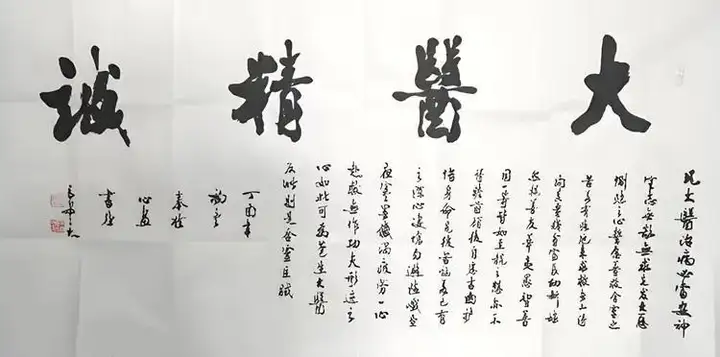 大醫精誠
凡大醫治病必當安神
定志無欲無求先發大慈
惻隱之心誓願普救含靈之
苦若有疾厄來求救者不得
問其貴賤貧富長幼妍媸
怨親善友華夷愚智普
同一等皆如至親之想亦不
得瞻前顧後自慮吉凶護
惜身命見彼苦惱若己有
之深心悽愴勿避險巇晝
夜寒暑飢渴疲勞一心
赴救無作功夫形迹之
心如此可為蒼生大醫
反此則是含靈巨賊
丁酉年